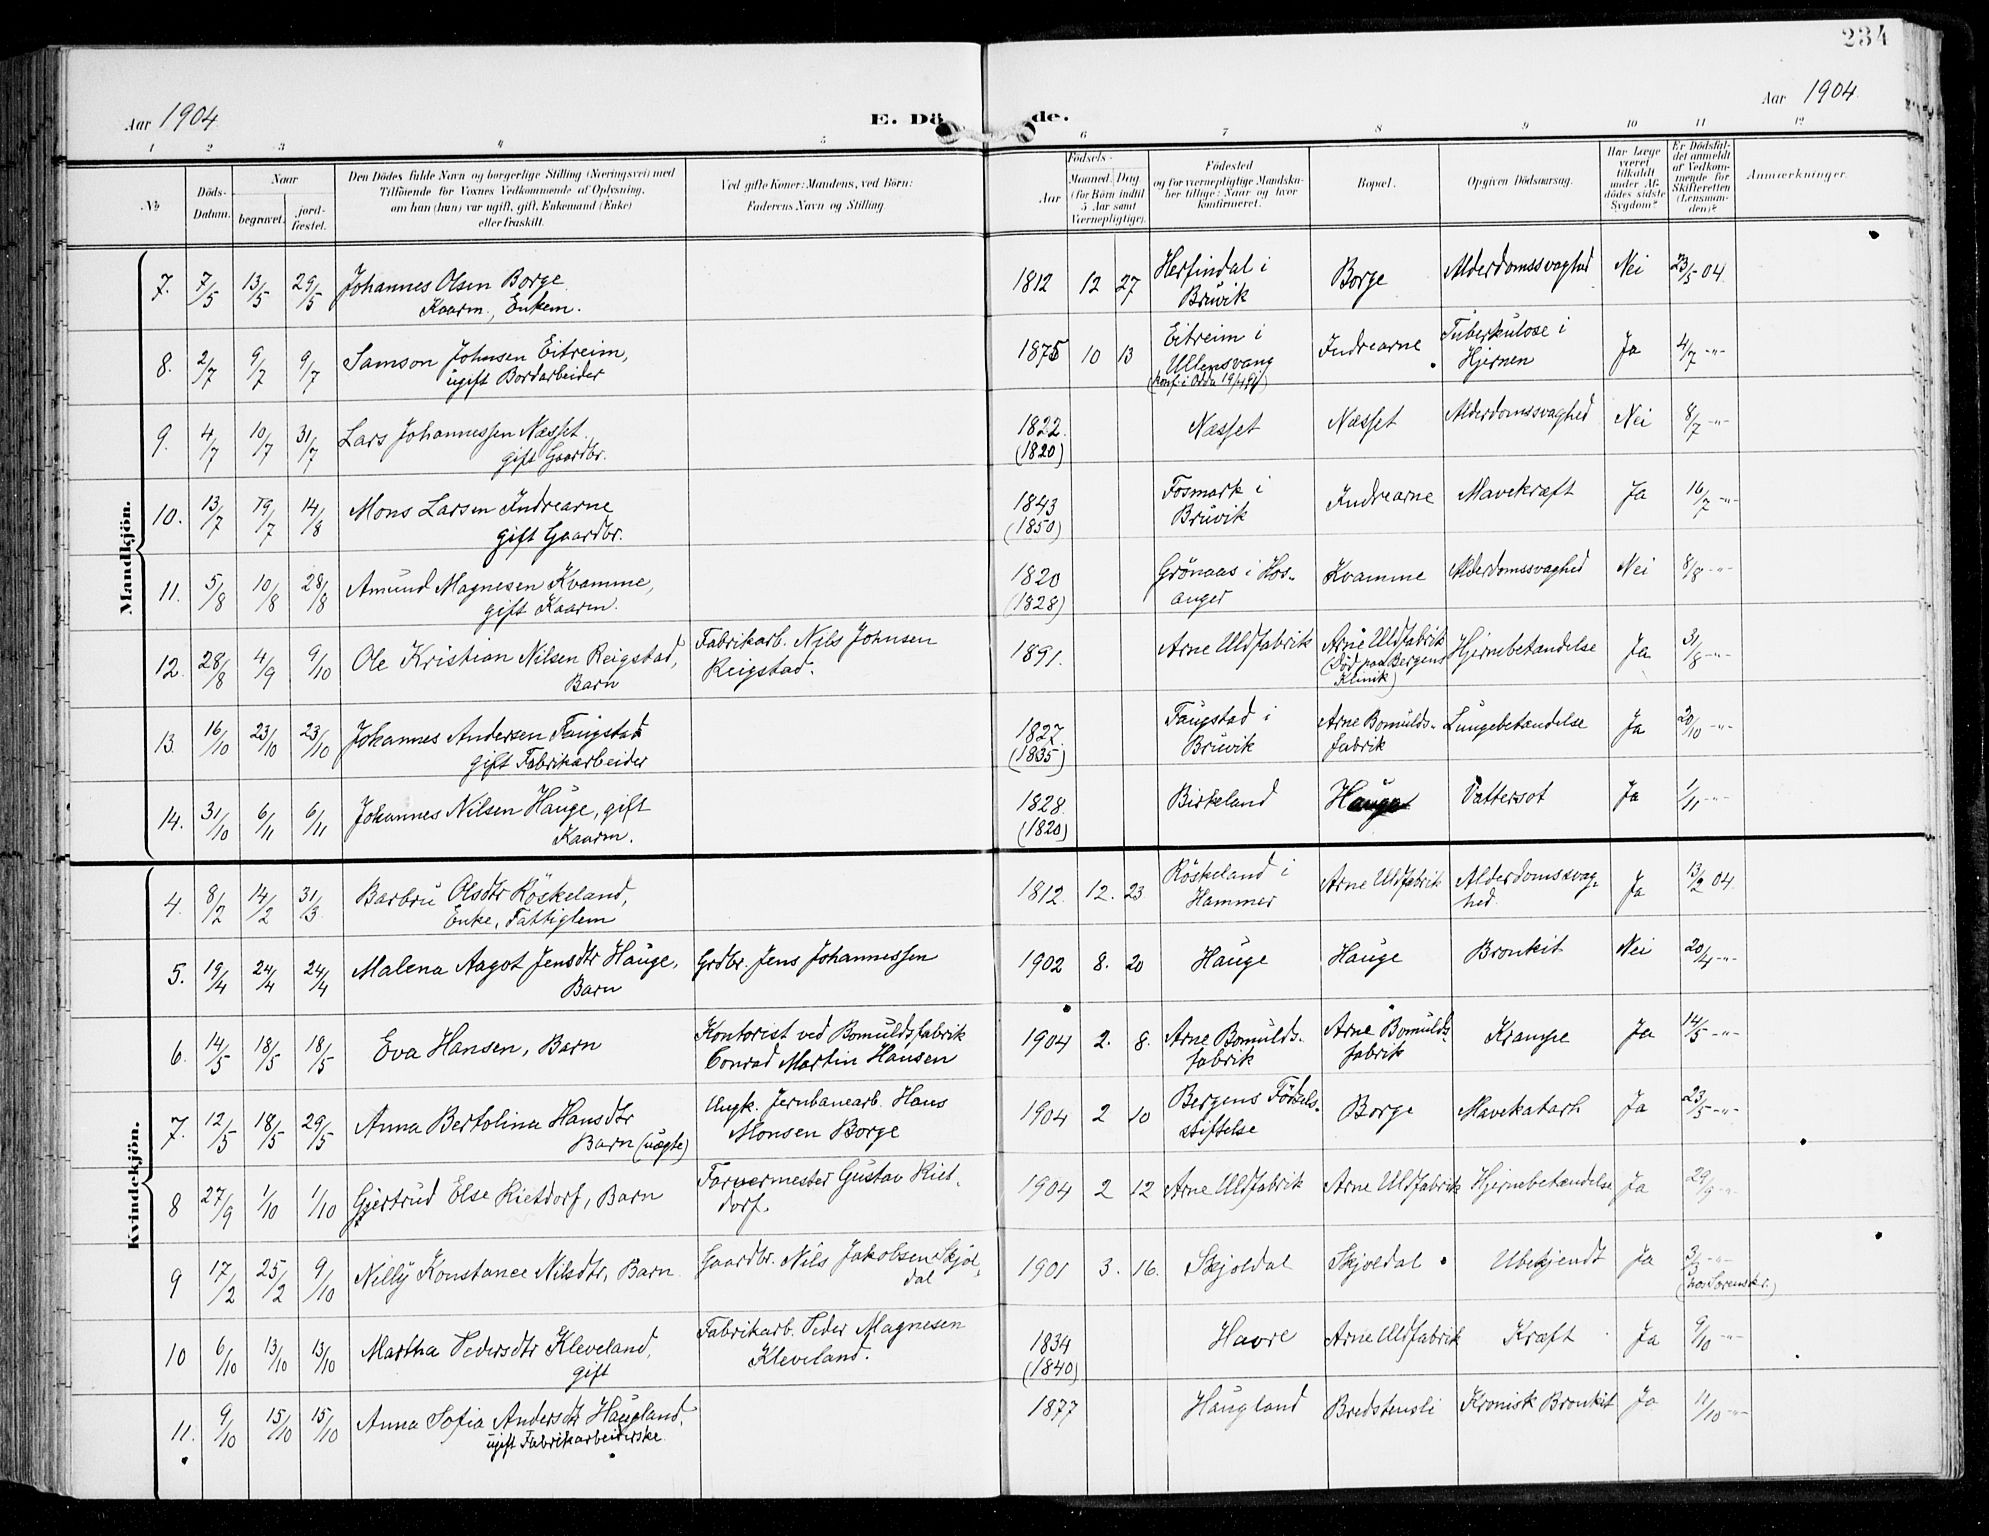 234
Aar 1904
E. Dö
de.
Aar 1904.
1 2 3 4 5 6 7 8 9 10 11 12
No
Döds-
Datum.
Naar
begravet.
jord-
fæstet.
Den Dödes fulde Navn og borgerlige Stilling (Næringsvei) med
Tilföiende for Voxnes Vedkommende af Oplysning,
om han (hun) var ugift, gift, Enkemand (Enke)
eller fraskilt.
Ved gifte Koner: Mandens, ved Börn:
Faderens Navn og Stilling
Födsels-
Aar
Maaned. Dag
(for Börn indtil
5 Aar samt
Værnepligtige).
Födested
og for værnepligtige Mandska-
ber tillige: Naar og hvor
konfirmeret.
Bopæl.
Opgiven Dödsaarsag.
Har Læge
været
tilkaldt
under Af-
dödes sidste
Sygdom?
Er Dödsfal-
det anmeldt
af Vedkom-
mende for
Skifteretten
(Lensman-
den)?
Anmærkninger.
Mandkjön.
7. 7/5 13/5 29/5 Johannes Olsen Borge.
Kaarm., Enkem.
1812 12 27 Herfindal i
Brüvik
Borge Alderdomssvaghed Nei 23/5 04.
8. 2/7 9/7 9/7 Samson Johnsen Eitreim,
ugift Bordarbeider
1875 10 13 Eitreim i
Ullensvang
(konf. i Odda 19/4 91)
Indrearne Tüberkülose i
Hjernen
Ja 4/7 -"-
9. 4/7 10/7 31/7 Lars Johannessen Næsset.
gift Gaardbr.
1822.
(1820)
Næsset Næsset Alderdomssvaghed Nei 8/7 -"-
10. 13/7 19/7 14/8 Mons Larsen Indrearne
gift Gaardbr.
1843
(1850)
Fosmark i
Brüvik
Indrearne Mavekræft Ja 16/7 -"-
11. 5/8 10/8 28/8 Amünd Magnesen Kvamme,
gift Kaarm.
1820
(1828)
Grönaas i Hos-
anger
Kvamme Alderdomssvaghed Nei 8/8 -"-
12. 28/8 4/9 9/10 Ole Kristian Nilsen Reigstad,
Barn
Fabrikarb. Nils Johnsen
Reigstad.
1891. Arne Uldfabrik Arne Uldfabrik
(Död paa Bergens
Klinik)
Hjernebetændelse Ja 31/8 -"-
13. 16/10 23/10 23/10 Johannes Andersen Faugstad
gift Fabrikarbeider
1827.
(1835)
Faügstad i
Brüvik
Arne Bomülds-
fabrik
Lüngebetændelse Ja 20/10 -"-
14. 31/10 6/11 6/11 Johannes Nilsen Haüge, gift
Kaarm.
1828.
(1820)
Birkeland Haüge Vattersot Ja 1/11 -"-
Kvindekjön.
4. 8/2 14/2 31/3 Barbrü Olsdtr Röskeland,
Enke, Fattiglem
1812. 12. 23 Röskeland i
Hammer
Arne Uldfabrik Alderdomssvag-
hed.
Ja 13/2 04
5. 19/4 24/4 24/4 Malena Aagot Jensdtr Haüge,
Barn
Grdbr. Jens Johannessen
1902 8. 20 Haüge Haüge Bronkit Nei 20/4 -"-
6. 14/5 18/5 18/5 Eva Hansen, Barn
Kontorist ved Bomüldsfabrik
Conrad Martin Hansen
1904 2. 8. Arne Bomülds-
fabrik
Arne Bomülds-
fabrik
Krampe Ja 14/5 -"-
7. 12/5 18/5 29/5 Anna Bertolina Hansdtr
Barn (uægte)
Ungk. Jernbanearb. Hans
Monsen Borge
1904 2 10 Bergens Födsels-
stiftelse
Borge Mavekatarh Ja 23/5 -"-
8 27/9 1/10 1/10 Gjertrud Else Rietdorf, Barn
Farvermester Gustav Riet-
dorf.
1904 2 12 Arne Uldfabrik Arne Uldfabrik Hjernebetændelse Ja 29/9 -"-
9 17/2 25/2 9/10 Nilly Konstance Nilsdtr, Barn
Gaardbr. Nils Jakobsen Skjol-
dal
1901 3. 16. Skjoldal Skjoldal Ubekjendt Ja 3/3 -"-
(hos Sorenskr.)
10 6/10 13/10 13/10 Martha Pedersdtr Kleveland,
gift
Fabrikarb. Peder Magnesen
Kleveland.
1834
(1840)
Havre Arne Uldfabrik Kræft Ja 9/10 -"-
11. 9/10 15/10 15/10 Anna Sofia Andersdtr Haügland,
ugift Fabrikarbeiderske.
1877 Haügland Bredstensli Kronisk Bronkit Ja 11/10 -"-